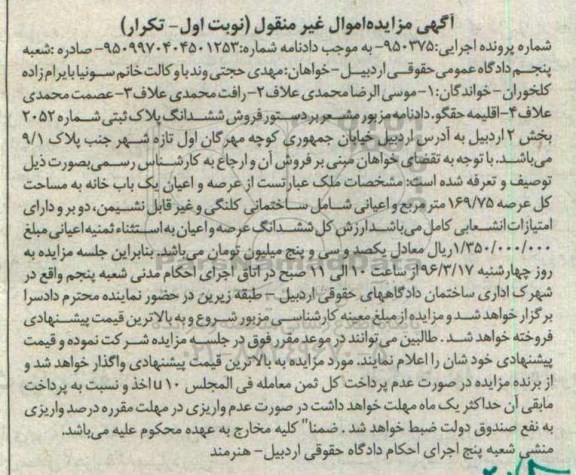 آگهی مزایده اموال غیر منقول (نوبت اول- تکرار)
شماره پرونده اجرایی:۹۵۰۳۷۵- به موجب دادنامه شماره:۹۵۰۹۹۷۰۴۰۴۵۰۱۲۵۳- صادره :شعبه
پنجم دادگاه عمومی حقوقی اردبیل – خواهان:مهدی حجتی وند با وکالت خانم سونیا بایرام زاده
کلخوران – خواندگان:۱-موسی الرضا محمدی علاف۲- رافت محمدی علاف۳-عصمت محمدی
علاف۴-اقلیمه حقگو.دادنامه مزبور مشعر بر دستور فروش ششدانگ پلاک ثبتی شماره ۲۰۵۲
بخش ۲ اردبیل به آدرس اردبیل خیابان جمهوری کوچه مهرگان اول تازه شهر جنب پلاک ۹/۱
می‌باشد. با توجه به تقضای خواهان مبنی بر فروش آن و ارجاع به کارشناس رسمی بصورت ذیل
توصیف و تعرفه شده است: مشخصات ملک عبارتست از عرصه و اعیان یک باب خانه به مساحت
کل عرصه ۱۶۹/۷۵ متر مربع و اعیانی شامل ساختمانی کلنگی و غیر قابل نشیمن، دو بر و دارای
امتیازات انشعابی کامل می‌باشد ارزش کل ششدانگ عرصه و اعیان به استثناء ثمنیه اعیانی مبلغ
۱/۳۵۰/۰۰۰/۰۰۰ریال معادل یکصد و سی و پنج میلیون تومان می‌باشد. بنابراین جلسه مزایده به
روز چهارشنبه ۹۶/۳/۱۷از ساعت ۱۰ الی ۱۱ صبح در اتاق اجرای احکام مدنی شعبه پنجم واقع در
شهرک اداری ساختمان دادگاههای حقوقی اردبیل – طبقه زیرین در حضور نماینده محترم دادسرا
برگزار خواهد شد و مزایده از مبلغ معینه کارشناسی مزبور شروع و به بالاترین قیمت پیشنهادی
فروخته خواهد شد . طالبین می‌توانند در موعد مقرر فوق در جلسه مزایده شرکت نموده و قیمت
پیشنهادی خود شان را اعلام نمایند. مورد مزایده به بالاترین قیمت پیشنهادی واگذار خواهد شد و
از برنده مزایده در صورت عدم پرداخت کل ثمن معامله فی المجلس ۱۰ u اخذ و نسبت به پرداخت
مابقی آن حداکثر یک ماه مهلت خواهد داشت در صورت عدم واریزی در مهلت مقرره درصد واریزی
به نفع صندوق دولت ضبط خواهد شد . ضمنا" کلیه مخارج به عهده محکوم علیه می‌باشد.
منشی شعبه پنج اجرای احکام دادگاه حقوقی اردبیل- هنرمند